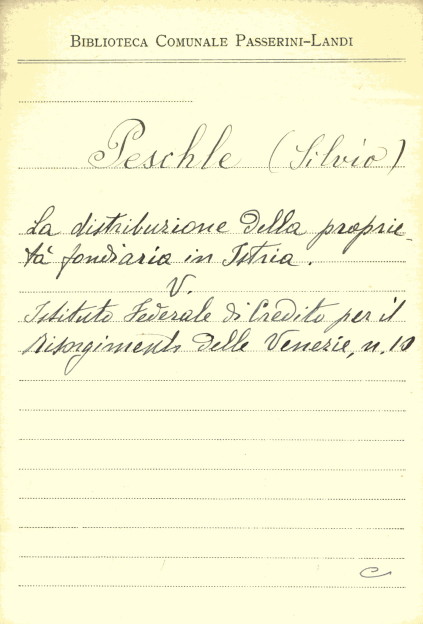 BIBLIOTECA COMUNALE PASSERINI-LANDI
Peschle (Silvio)
La distribuzione della proprie-
tà fondiaria in Istria.
V.
Istituto Federale di Credito per il
Risorgimento delle Venezie, n. 10
C